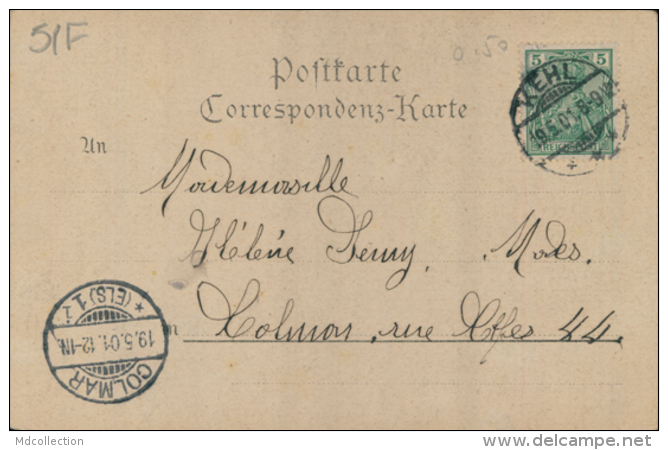 51F
0.50
5 5
REICHSPOST
KEHL
19.5.01. 8-9V.
Postkarte
Correspondenz-Karte
An
Mademoiselle
Hélène Remy, Modes.
in Colmar, rue 44.
COLMAR
19.5.01. 12-1N.
* (ELS) 1 i
Mdcollection
www.delcampe.net